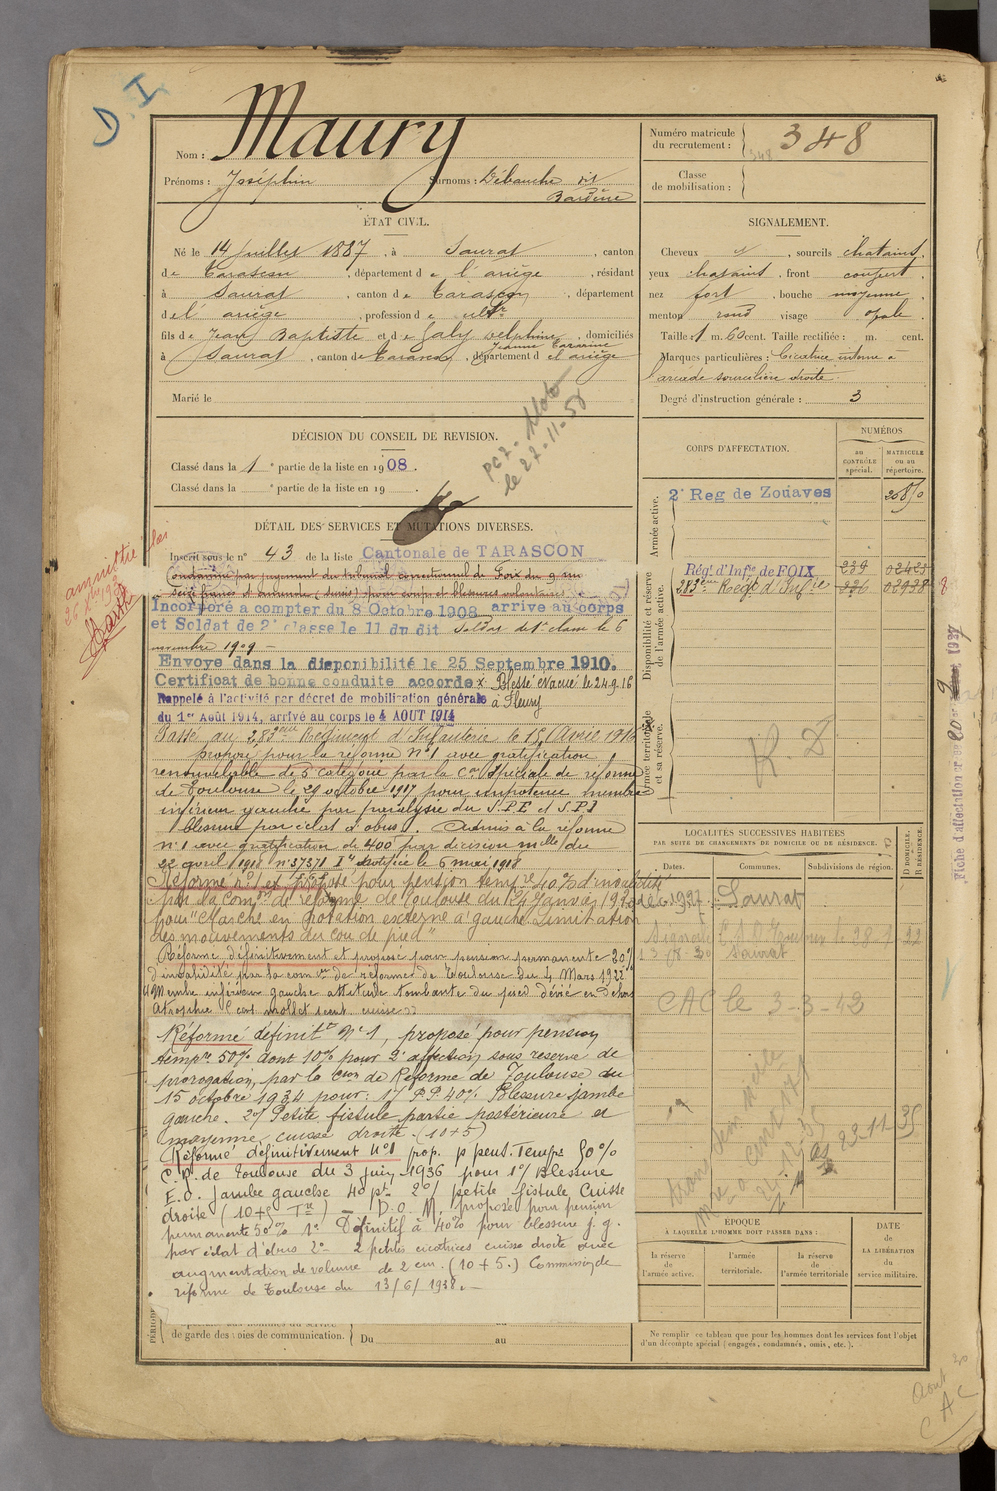 D. I
Nom : Maury
Prénoms : Joséphin Surnoms : Débauche dit
Bardine
Numéro matricule
du recrutement : 348
348
Classe
de mobilisation :
ÉTAT CIVIL.
Né le 14 Juillet 1887, à Saurat, canton
de Tarascon, département de l'ariège, résidant
à Saurat, canton de Tarascon, département
de l'ariège, profession de cultr
fils de Jean Baptiste et de Galy Delphine, domiciliés
Jeanne
à Saurat, canton de Tarascon, département de l'ariège
Marié le
SIGNALEMENT.
Cheveux, sourcils chatains,
yeux chatains, front couvert,
nez fort, bouche moyenne,
menton rond visage ovale.
Taille : 1 m. 60 cent. Taille rectifiée : m. cent.
Marques particulières : Cicatrice interne à
l'arcade sourcilière droite.
Degré d'instruction générale : 3
DÉCISION DU CONSEIL DE REVISION.
Classé dans la 1e partie de la liste en 1908.
Classé dans la e partie de la liste en 19 .
le 27-11-50
DÉTAIL DES SERVICES ET MUTATIONS DIVERSES.
Inscrit sous le n° 43 de la liste Cantonale de TARASCON
amnistié
Condamné par jugement du tribunal correctionnel de Foix du 9
seize francs d'amende (sursis) pour coups et blessures volontaires
Incorporé a compter du 8 Octobre 1908 arrive au corps
et Soldat de 2e classe le 11 du dit Soldat de 1e classe le 6
novembre 1909 -
Envoye dans la disponibilité le 25 Septembre 1910.
Certificat de bonne conduite accorde x Blessé évacué le 24.9.16
Rappelé à l'activité par décret de mobilisation générale à Fleury
du 1er Août 1914, arrivé au corps le 4 AOUT 1914
Passé au 283eme Régiment d'Infanterie le 15 Avril 1916
proposé pour la réforme N°1 avec gratification
renouvelable de 5 catégorie par la Con spéciale de réforme
de Toulouse le 29 octobre 1917 pour impotence membre
inférieur gauche par paralysie du S.P.E et S.P.I
blessure par éclat d'obus. Admis à la réforme
n°1 avec gratification de 400f par décision mlle du
22 avril 1918 n° 37371 Ie notifiée le 6 mai 1918
Réformé n°1 et proposé pour pension tempre 40% d'invalidité
par la Comon de réforme de Toulouse du 24 Janvier 1920
pour "Marche en rotation externe à gauche Limitation
des mouvements du cou de pied"
Réformé définitivement et proposé pour pension permanente 30%
d'invalidité par la comon de réforme de Toulouse du 4 Mars 1922
"Membre inférieur gauche attitude tombante du pied dévié en dehors
Atrophie 1 cent mollet 1 cent cuisse"
Réformé définitt N°1, proposé pour pension
tempre 50% dont 10% pour 2e affection sous réserve de
prorogation, par la Con de Réforme de Toulouse du
15 octobre 1934 pour : 1°/ P.P. 40% Blessure jambe
gauche. 2°/ Petite fistule partie postérieure et
moyenne, cuisse droite. (10+5)
Réformé définitivement N°1 prop. p pens. Temps 50%
C.R. de Toulouse du 3 juin 1936 pour 1°/ Blessure
E.O. Jambe gauche 40 pt. 2°/ petite fistule Cuisse
droite (10+5 Tre) - D.O.M. proposé pour pension
permanente 50% 1° Définitif à 40% pour blessure j.g.
par éclat d'obus 2° - 2 petites cicatrices cuisse droite avec
augmentation de volume de 2 cm. (10+5.) Commission de
réforme de Toulouse du 13/6/1938. -
de garde des voies de communication. Du au
CORPS D'AFFECTATION.
NUMÉROS
au
CONTRÔLE
spécial.
MATRICULE
ou au
répertoire.
Armée active.
2e Reg de Zouaves
Disponibilité et réserve
de l'armée active.
Régt d'Infie de FOIX 239 02423
283eme Regt d'Infie 236 02938
Armée territoriale
et sa réserve.
LOCALITÉS SUCCESSIVES HABITÉES
PAR SUITE DE CHANGEMENTS DE DOMICILE OU DE RÉSIDENCE.
Dates. Communes. Subdivisions de région.
D DOMICILE.
R RÉSIDENCE.
1927 Saurat
13-8-30 Saurat
CAC le 3-3-43
23-11-35
ÉPOQUE
À LAQUELLE L'HOMME DOIT PASSER DANS :
la réserve
de
l'armée active.
l'armée
territoriale.
la réserve
de
l'armée territoriale
DATE
de
LA LIBÉRATION
du
service militaire.
Ne remplir ce tableau que pour les hommes dont les services font l'objet
d'un décompte spécial (engagés, condamnés, omis, etc.).
Fiche d'affectation
Aout 30
CAC